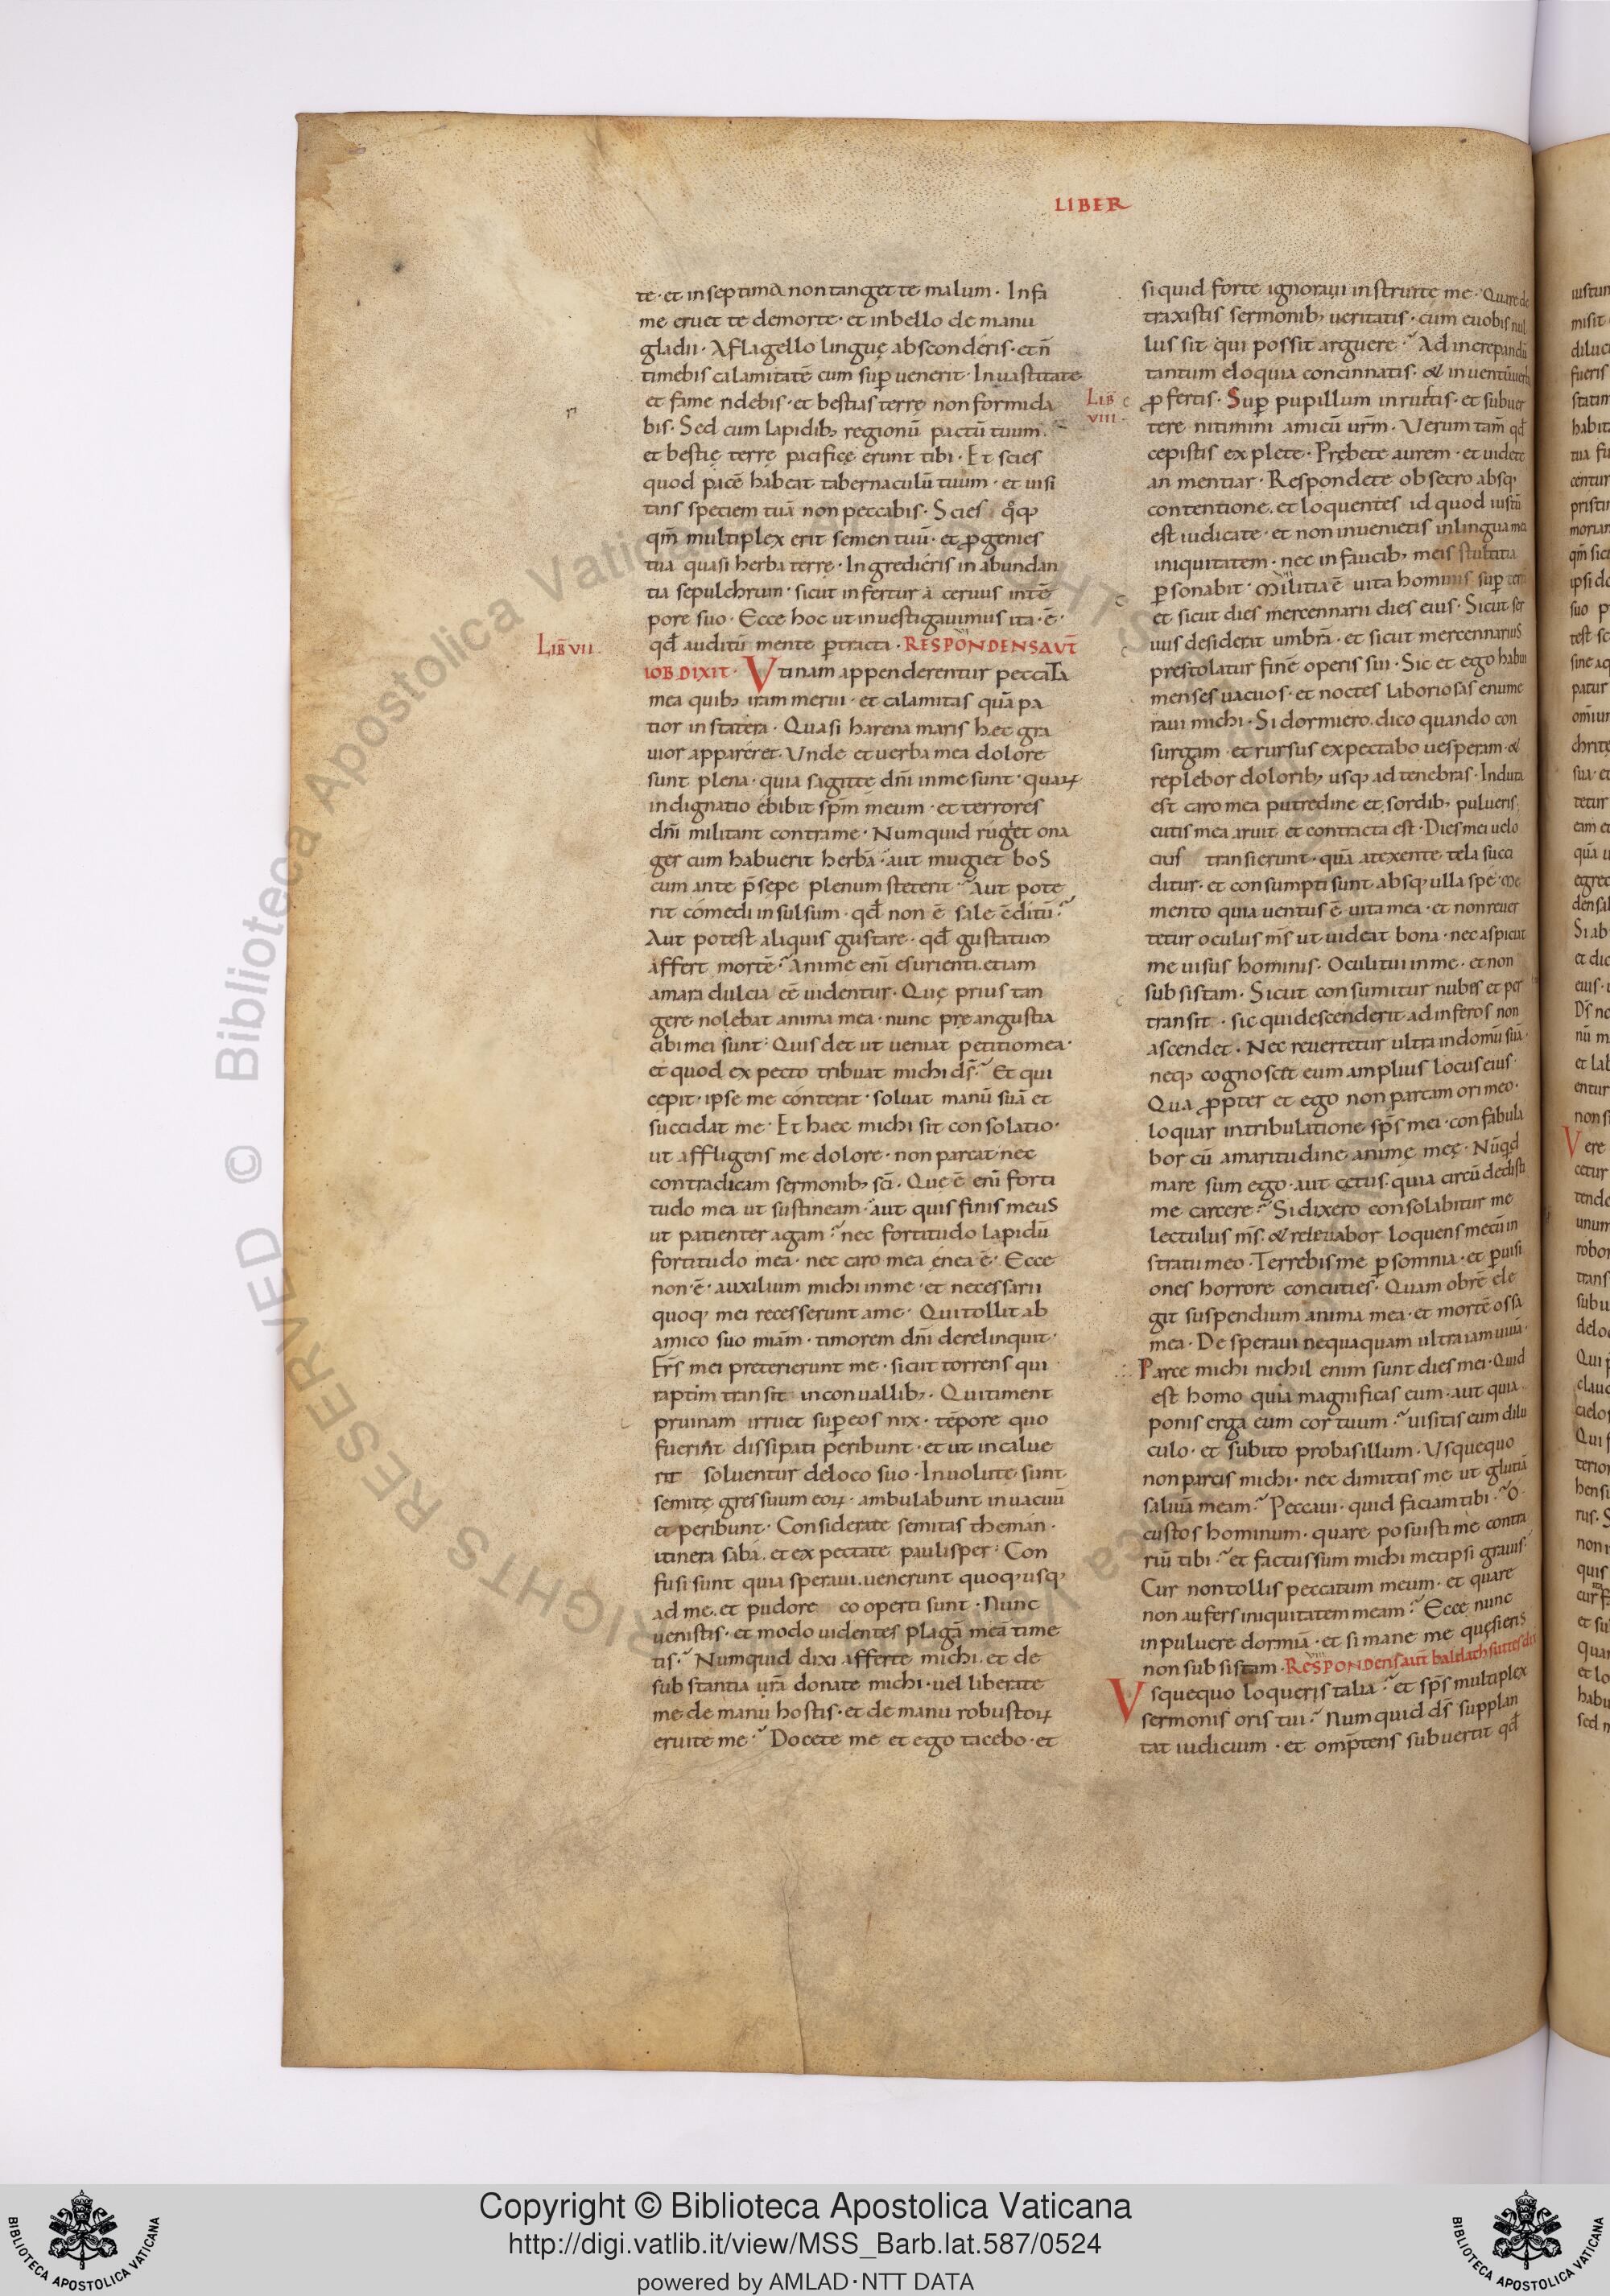 LIBER
te · et in septima non tanget te malum · In fa
me eruet te de morte · et in bello de manu
gladii · A flagello linguę absconderis · et ñ
timebis calamitatē cum suꝑ uenerit · In uastitate
et fame ridebis · et bestias terrę non formida
bis · Sed cum lapidibꝫ regionū pactū tuum ·
et bestię terrę pacificę erunt tibi · Et scies
quod pacē habeat tabernaculū tuum · et uisi
tans speciem tuā non peccabis · Scies qͦqꝫ
qm̄ multiplex erit semen tuū · et ꝓgenies
tua quasi herba terrę · Ingredieris in abundan
tia sepulchrum · sicut infertur aceruus in tē
pore suo · Ecce hoc ut inuestigauimus ita · ē ·
Lib̄ VII ·
qđ auditū mente ꝑtracta · RESPONDENS AUT̄
IOB DIXIT · Vtinam appenderentur peccata
mea quibꝫ iram merui · et calamitas quā pa
tior in statera · Quasi harena maris hęc gra
uior appareret · Vnde et uerba mea dolore
sunt plena · quia sagitte dn̄i in me sunt · quaꝝ
indignatio ebibit sp̄m meum · et terrores
dn̄i militant contra me · Numquid ruget ona
ger cum habuerit herbā · aut mugiet bos
cum ante p̄sepe plenum steterit · Aut pote
rit comedi insulsum · qđ non ē sale cōditū ·
Aut potest aliquis gustare · qđ gustatum
affert mortē · Anime enī esurienti etiam
amara dulcia eē uidentur · Quę prius tan
gere nolebat anima mea · nunc pre angustia
cibi mei sunt · Quis det ut ueniat petitio mea ·
et quod expecto tribuat michi dś · Et qui
cepit · ipse me conterat · soluat manū suā et
succidat me · Et haec michi sit consolatio ·
ut affligens me dolore · non parcat nec
contradicam sermonibꝫ sc̄i · Que ē enī forti
tudo mea ut sustineam · aut quis finis meus
ut patienter agam · nec fortitudo lapidū
fortitudo mea · nec caro mea ęnea ē · Ecce
non · ē · auxilium michi in me · et necessarii
quoqꝫ mei recesserunt a me · Qui tollit ab
amico suo miām · timorem dn̄i derelinquit ·
Fr̄s mei preterierunt me · sicut torrens qui
raptim transit in conuallibꝫ · Qui timent
pruinam irruet suꝑ eos nix · tēpore quo
fuerint dissipati peribunt · et ut incalue
rit soluentur de loco suo · Inuolute sunt
semitę gressuum eoꝝ · ambulabunt in uacuū
et peribunt · Considerate semitas theman ·
itinera saba · et expectate paulisper · Con
fusi sunt quia speraui · uenerunt quoqꝫ usqꝫ
ad me · et pudore cooperti sunt · Nunc
uenistis · et modo uidentes plagā meā time
tis · Numquid dixi afferte michi · et de
substantia ur̄a donate michi · uel liberate
me de manu hostis · et de manu robustoꝝ
eruite me · Docete me et ego tacebo · et
si quid forte ignoraui instruite me · Quare de
traxistis sermonibꝫ ueritatis · cum e uobis nul
lus sit qui possit arguere · Ad increpandū
tantum eloquia concinnatis · & in uentū uerba
Lib̄
VIII ·
ꝓfertis · Suꝑ pupillum inruitis · et subuer
tere nitimini amicū ur̄m · Verum tam̄ qđ
cepistis explete · Prębete aurem · et uidete
an mentiar · Respondete obsecro absqꝫ
contentione · et loquentes id quod iustū
est iudicate · et non inuenietis in lingua mea
iniquitatem · nec in faucibꝫ meis stultitia
ꝑsonabit · Militia ē uita hominis suꝑ terrā
et sicut dies mercennarii dies eius · Sicut ser
uus desiderat umbrā · et sicut mercennarius
prestolatur finē operis sui · Sic et ego habui
menses uacuos · et noctes laboriosas enume
raui michi · Si dormiero · dico quando con
surgam · et rursus expectabo uesperam · &
replebor doloribꝫ usqꝫ ad tenebras · Induta
est caro mea putredine et sordibꝫ pulueris ·
cutis mea aruit et contracta est · Dies mei uelo
cius transierunt · quā a texente tela succi
ditur · et consumpti sunt absqꝫ ulla spe · Me
mento quia uentus ē uita mea · et non reuer
tetur oculus ms̄ ut uideat bona · nec aspiciet
me uisus hominis · Oculi tui in me · et non
subsistam · Sicut consumitur nubes et per
transit · sic qui descenderit ad inferos non
ascendet · Nec reuertetur ultra in domū suā ·
neqꝫ cognoscet eum amplius locus eius ·
Qua ꝓpt̄er et ego non parcam ori meo ·
loquar in tribulatione sp̄s mei · confabula
bor cū amaritudine animę meę · Nūqđ
mare sum ego · aut cetus · quia circūdedisti
me carcere · Si dixero consolabitur me
lectulus ms̄ · & releuabor loquens mecū in
stratu meo · Terrebis me ꝑ somnia · et ꝑ uisi
ones horrore concuties · Quam obrē ele
git suspendium anima mea · et mortē ossa
mea · Desperaui nequaquam ultra iam uiuā ·
Parce michi nichil enim sunt dies mei · Quid
est homo quia magnificas eum · aut quia
ponis erga eum cor tuum · uisitas eum dilu
culo · et subito probas illum · Vsquequo
non parcis michi · nec dimittis me ut glutiā
saliuā meam · Peccaui · quid faciam tibi · O
custos hominum · quare posuisti me contra
riū tibi · et factus sum michi metipsi grauis ·
Cur non tollis peccatum meum · et quare
non aufers iniquitatem meam · Ecce nunc
in puluere dormiā · et si mane me quęsieris
non subsistam · RESPONDens aut̄ baldach suites dix̄
Vsquequo loqueris talia · et sp̄s multiplex
sermonis oris tui · Numquid dś supplan
tat iudicium · et omp̄tens subuertit qđ
Copyright © Biblioteca Apostolica Vaticana
http://digi.vatlib.it/view/MSS_Barb.lat.587/0524
powered by AMLAD·NTT DATA
BIBLIOTECA APOSTOLICA VATICANA
BIBLIOTECA APOSTOLICA VATICANA